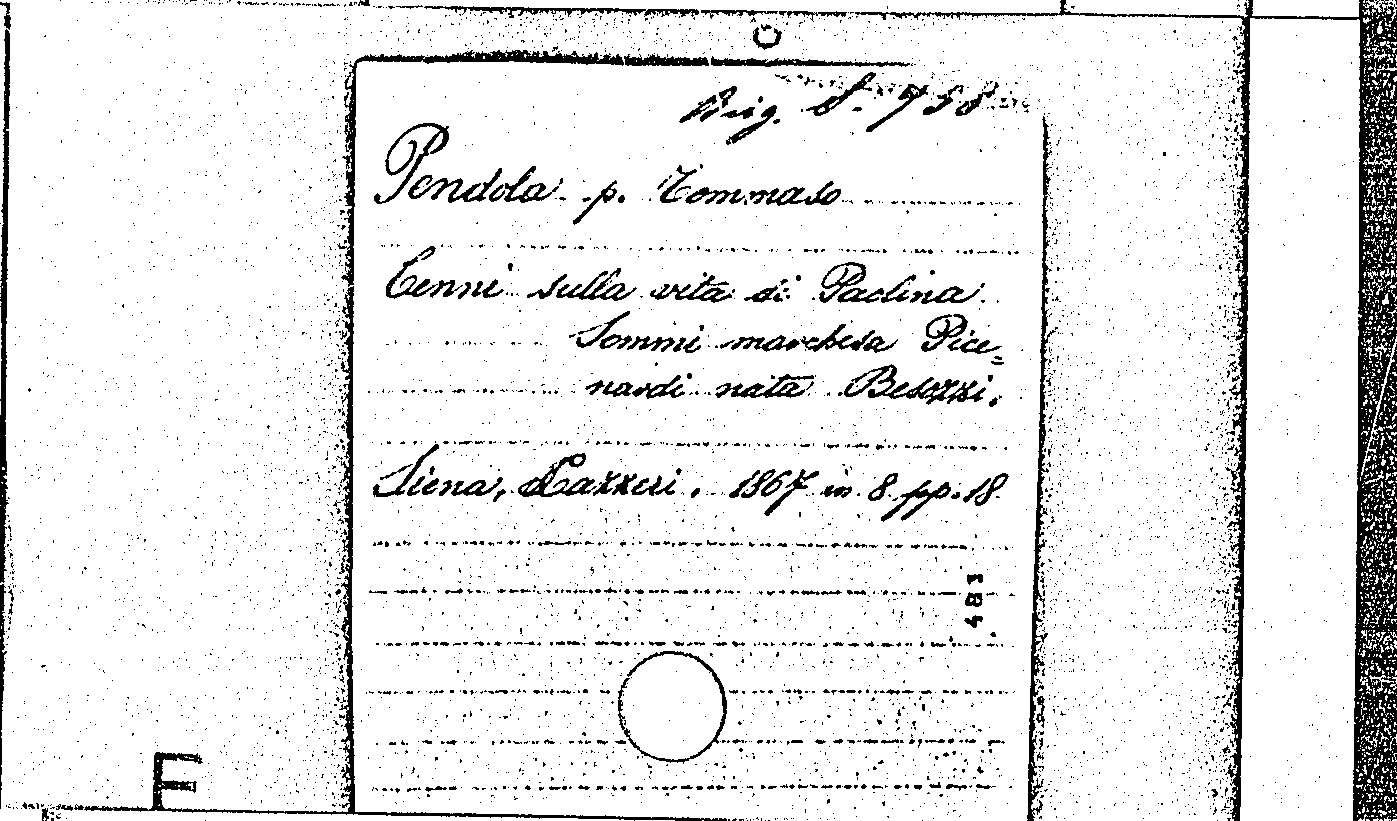 Big. S. 758
Pendola p. Tommaso
Cenni sulla vita di Paolina
Sommi marchesa Pice=
nardi nata Besozzi.
Siena, Lazzeri. 1867 in 8 pp. 18
481
E